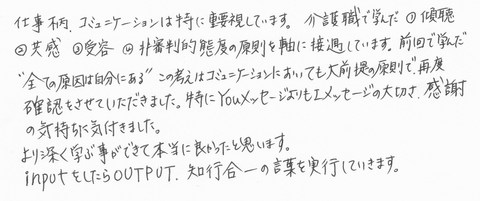 仕事柄、コミュニケーションは特に重要視しています。 介護職で学んだ ①傾聴
②共感 ③受容 ④非審判的態度の原則を軸に接遇しています。前回で学んだ
"全ての原因は自分にある" この考えはコミュニケーションにおいても大前提の原則で、再度
確認をさせていただきました。特にYouメッセージよりもIメッセージの大切さ、感謝
の気持ちに気付きました。
より深く学ぶ事ができて本当に良かったと思います。
inputをしたらOUTPUT、知行合一の言葉を実行していきます。